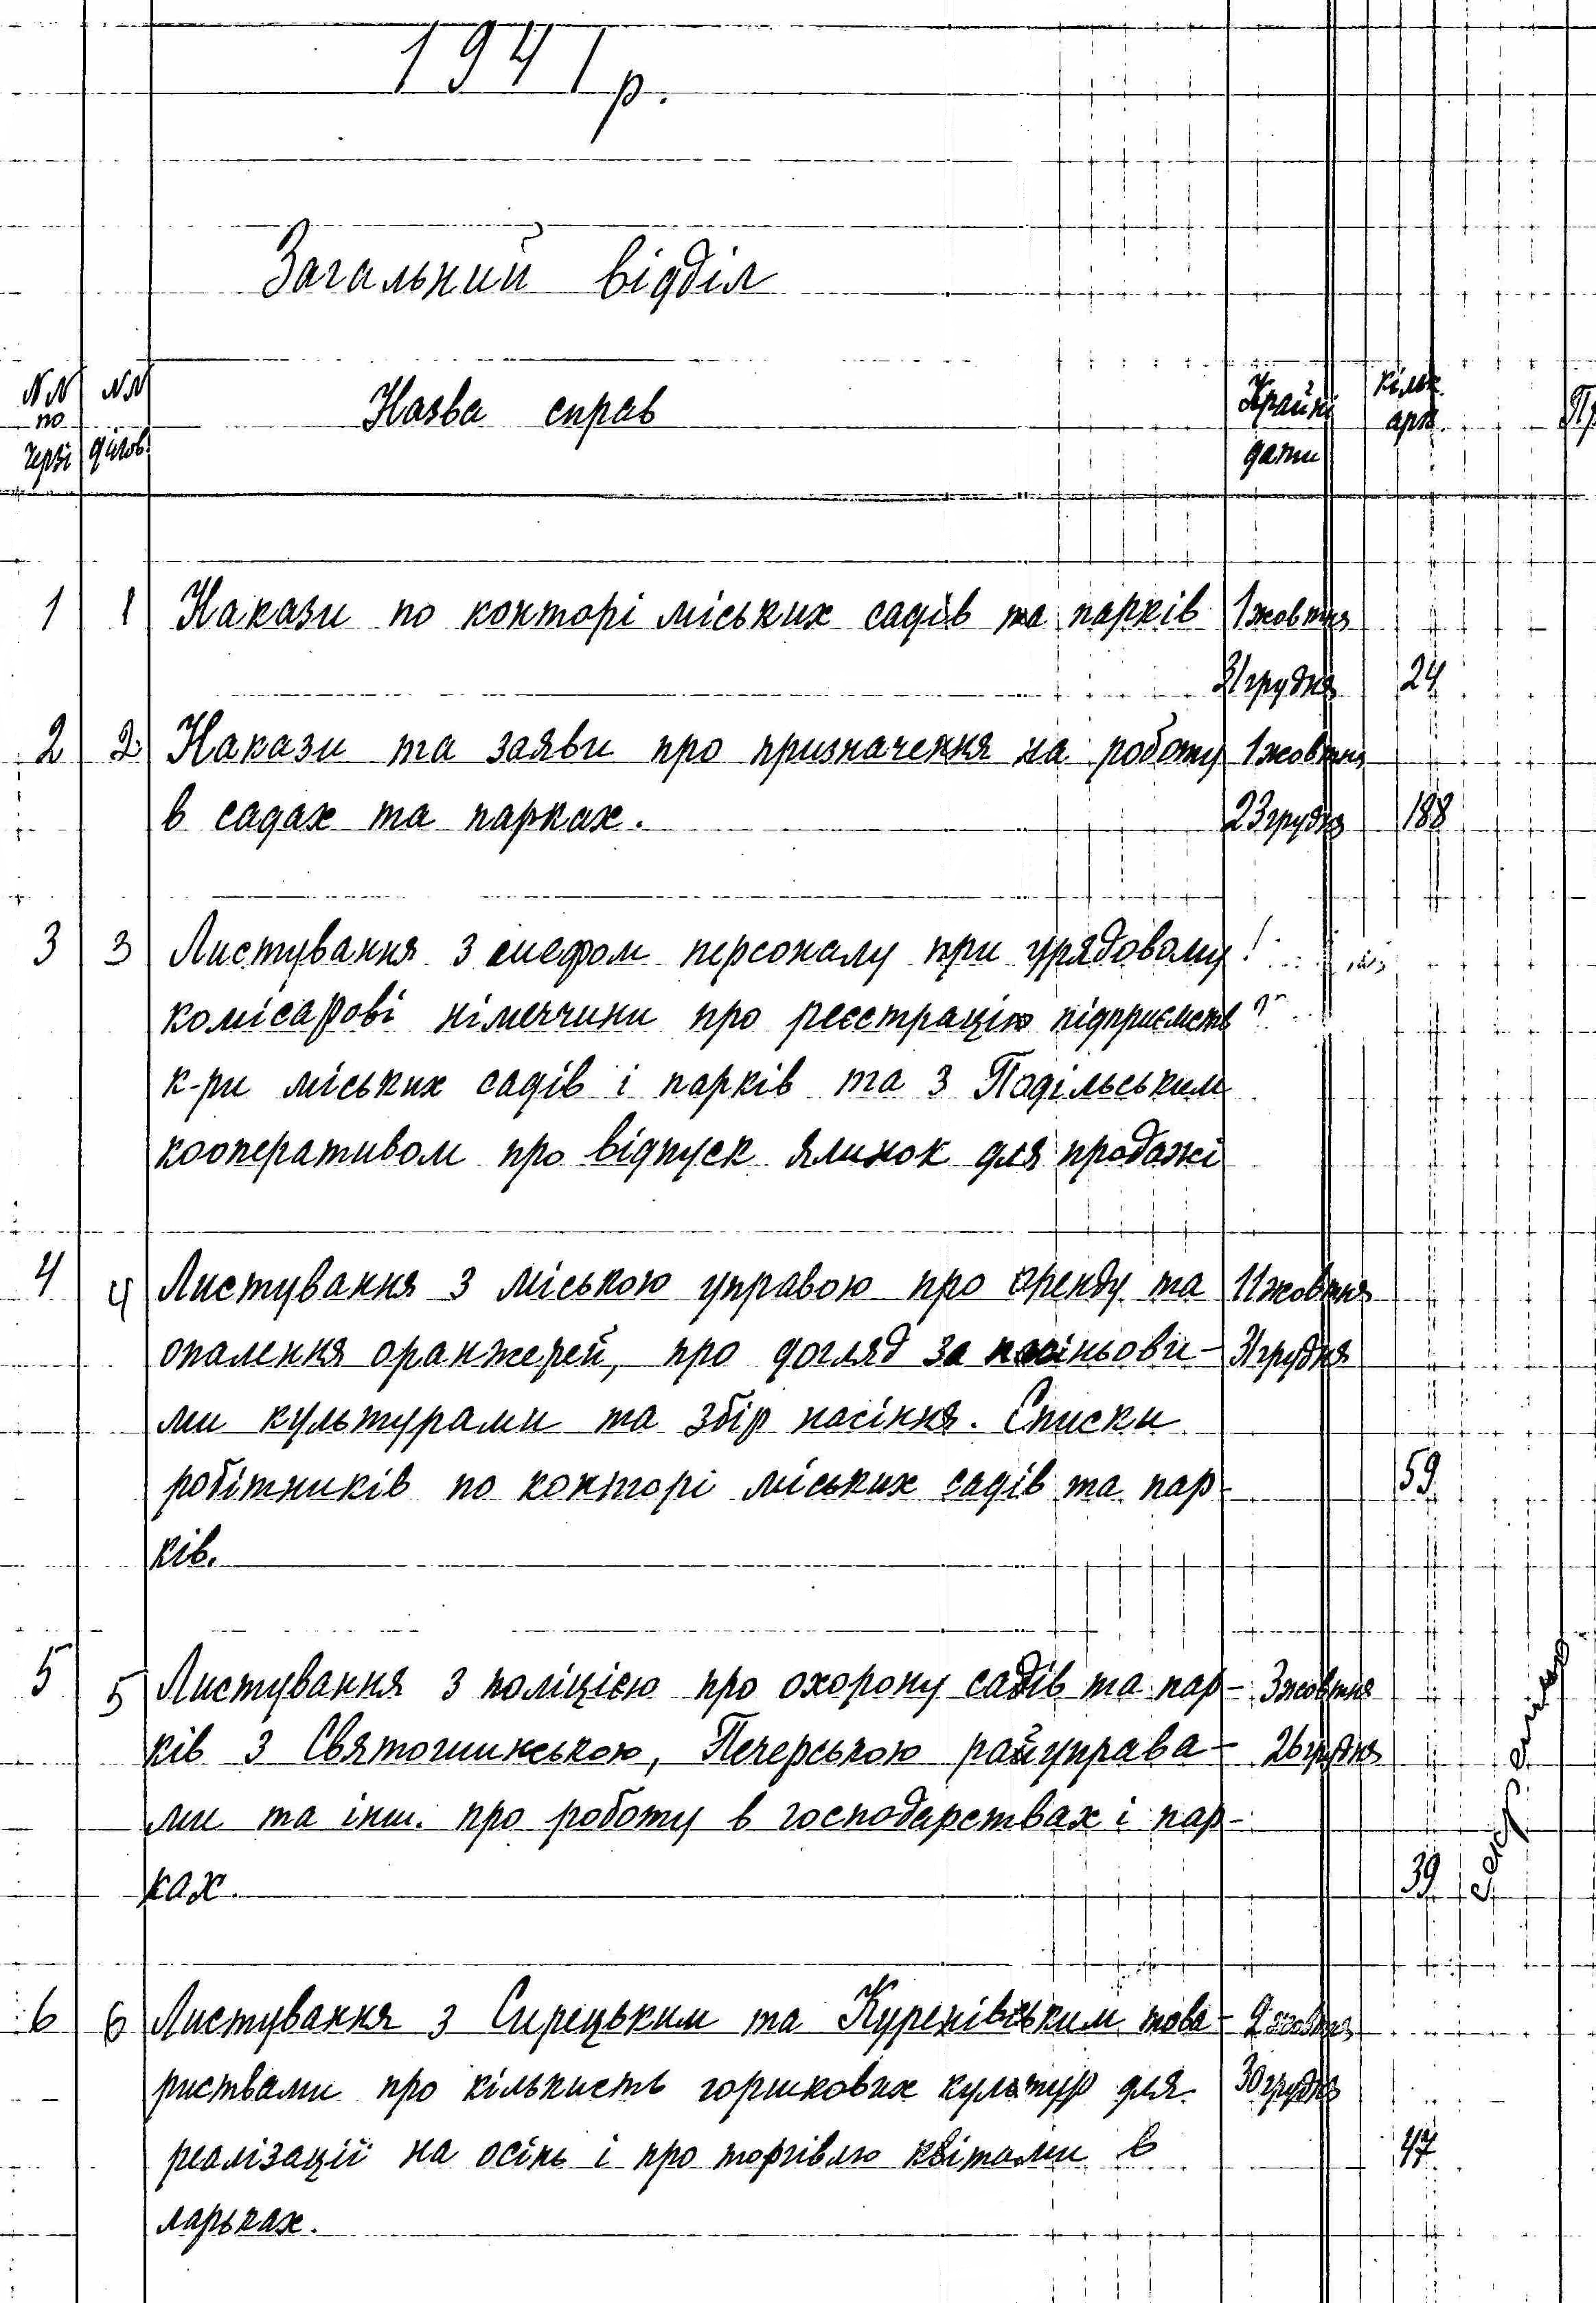 1941 р.
Загальний відділ
NN по черзі
NN діловод.
Назва справ
Крайні дати
Кільк. арк.
1 1 Накази по конторі міських садів та парків 1 жовтня
31 грудня 24
2 2 Накази та заяви про призначення на роботу 1 жовтня
в садах та парках. 23 грудня 188
3 3 Листування з шефом персоналу при урядовому
комісарові німеччини про реєстрацію підприємств
к-ри міських садів і парків та з Подільським
кооперативом про відпуск ялинок для продажі
4 4 Листування з міською управою про оренду та 11 жовтня
опалення оранжерей, про догляд за насіньови- 31 грудня
ми культурами та збір насіння. Списки
робітників по конторі міських садів та пар- 59
ків.
5 5 Листування з поліцією про охорону садів та пар- 3 жовтня
ків з Святошинською, Печерською райуправа- 26 грудня
ми та інш. про роботу в господарствах і пар-
ках. 39
6 6 Листування з Сирецьким та Куренівським това- 2 жовтня
риствами про кількисть горшкових культур для 30 грудня
реалізації на осінь і про торгівлю квітами в 47
ларьках.